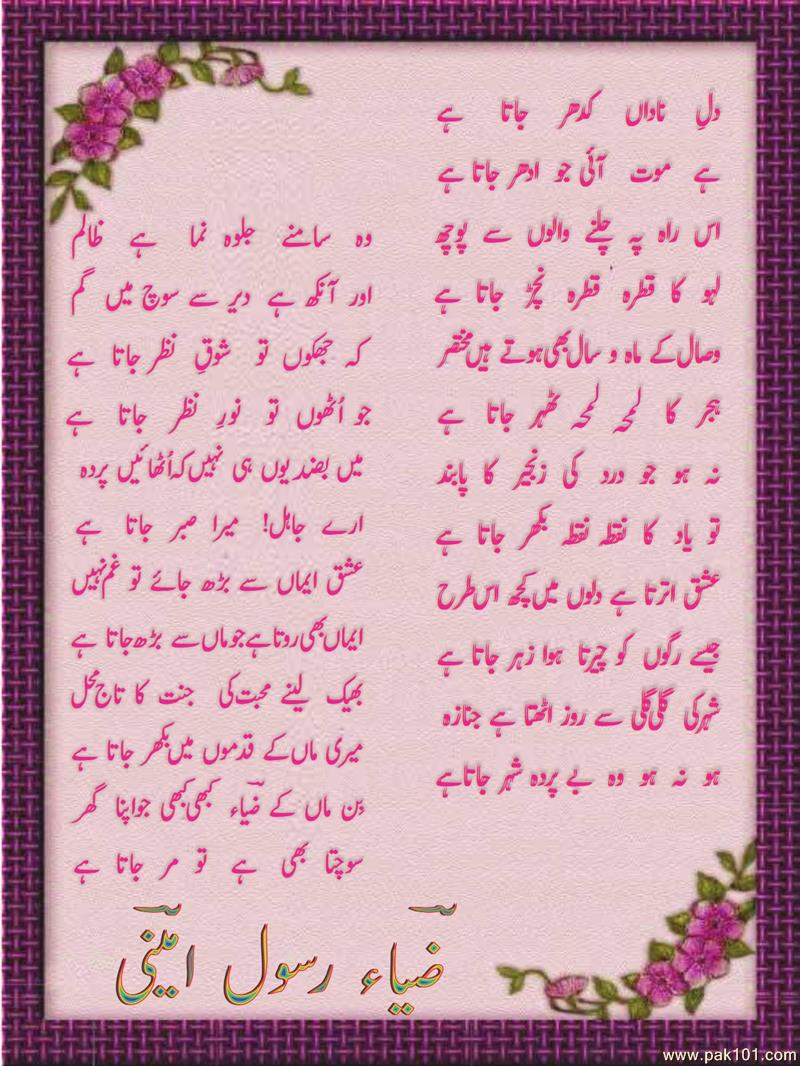 دلِ ناداں کدھر جاتا ہے
ہے موت آئی جو ادھر جاتا ہے
اس راہ پہ چلنے والوں سے پوچھ
لہو کا قطرہ قطرہ نچڑ جاتا ہے
وصال کے ماہ و سال بھی ہوتے ہیں مختصر
ہجر کا لمحہ لمحہ ٹھہر جاتا ہے
نہ ہو جو درد کی زنجیر کا پابند
تو یاد کا نقطہ نقطہ بکھر جاتا ہے
عشق اترتا ہے دلوں میں کچھ اس طرح
جیسے رگوں کو چیرتا ہوا زہر جاتا ہے
شہر کی گلی گلی سے روز اٹھتا ہے جنازہ
ہو نہ ہو وہ بے پردہ شہر جاتا ہے
وہ سامنے جلوہ نما ہے ظالم
اور آنکھ ہے دیر سے سوچ میں گم
کہ جھکوں تو شوقِ نظر جاتا ہے
جو اُٹھوں تو نورِ نظر جاتا ہے
میں بضد یوں ہی نہیں کہ اُٹھائیں پردہ
ارے جاہل! میرا صبر جاتا ہے
عشق ایماں سے بڑھ جائے تو غم نہیں
ایماں بھی روتا ہے جو ماں سے بڑھ جاتا ہے
بھیک لینے محبت کی جنت کا تاج محل
میری ماں کے قدموں میں بکھر جاتا ہے
بِن ماں کے ضیاء کبھی کبھی جو اپنا گھر
سوچتا بھی ہے تو مر جاتا ہے
ضیاء رسول امینی
www.pak101.com